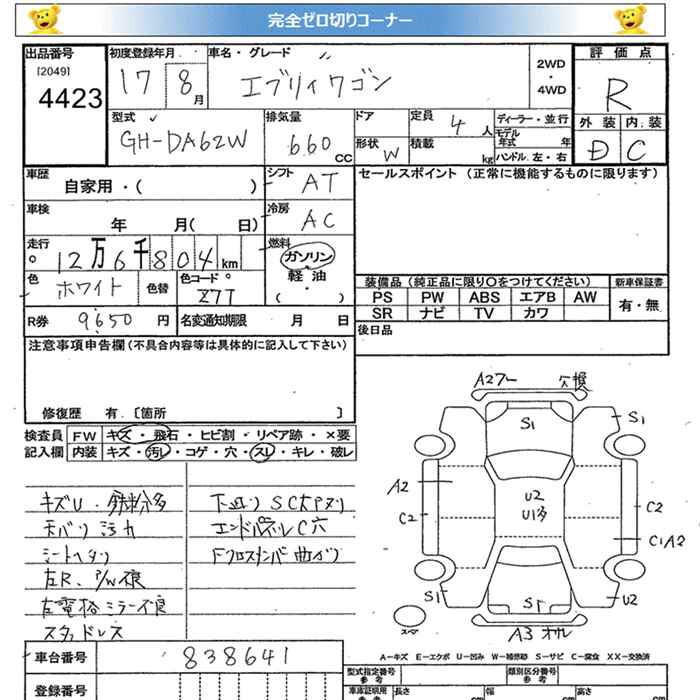 完全ゼロ切りコーナー
出品番号 [2049] 4423
初度登録年月 17 8月
車名・グレード エブリィワゴン
2WD・4WD
評価点 R
型式 GH-DA62W
排気量 660cc
ドア
形状 W
定員 4人
積載 kg
ディーラー・並行
モデル年式 年
ハンドル 左・右
外装 内装
D C
車歴 自家用・( )
シフト AT
セールスポイント (正常に機能するものに限ります)
車検 年 月( 日)
冷房 AC
走行 12万6千804km
燃料 ガソリン・軽油・( )
色 ホワイト 色替
色コード Z7T
装備品 (純正品に限り○をつけてください)
新車保証書
PS PW ABS エアB AW
有・無
SR ナビ TV カワ
R券 9650円
名変通知期限 月 日
後日品
注意事項申告欄 (不具合内容等は具体的に記入して下さい)
修復歴 有.[箇所 ]
検査員記入欄
FW キズ・飛石・ヒビ割・リペア跡・×要
内装 キズ・汚レ・コゲ・穴・スレ・キレ・破レ
キズU・鉄粉多
天バリ汚れ
シートヘタリ
左R.P/W不良
左電格ミラー不良
スタッドレス
下廻りSC大アリ
エンドパネルC穴
Fクロスメンバ曲がり
A2アー 欠損
S1 S1
A2
U2
U1多
C2 C2
C1A2
S1 S1 U2
スペア
A3 オル
A-キズ E-エクボ U-凹み W-補修跡 S-サビ C-腐食 XX-交換済
車台番号 838641
登録番号
型式指定番号 参考
類別区分番号 参考
車庫証明用 参考 長さ cm 幅 cm 高さ cm